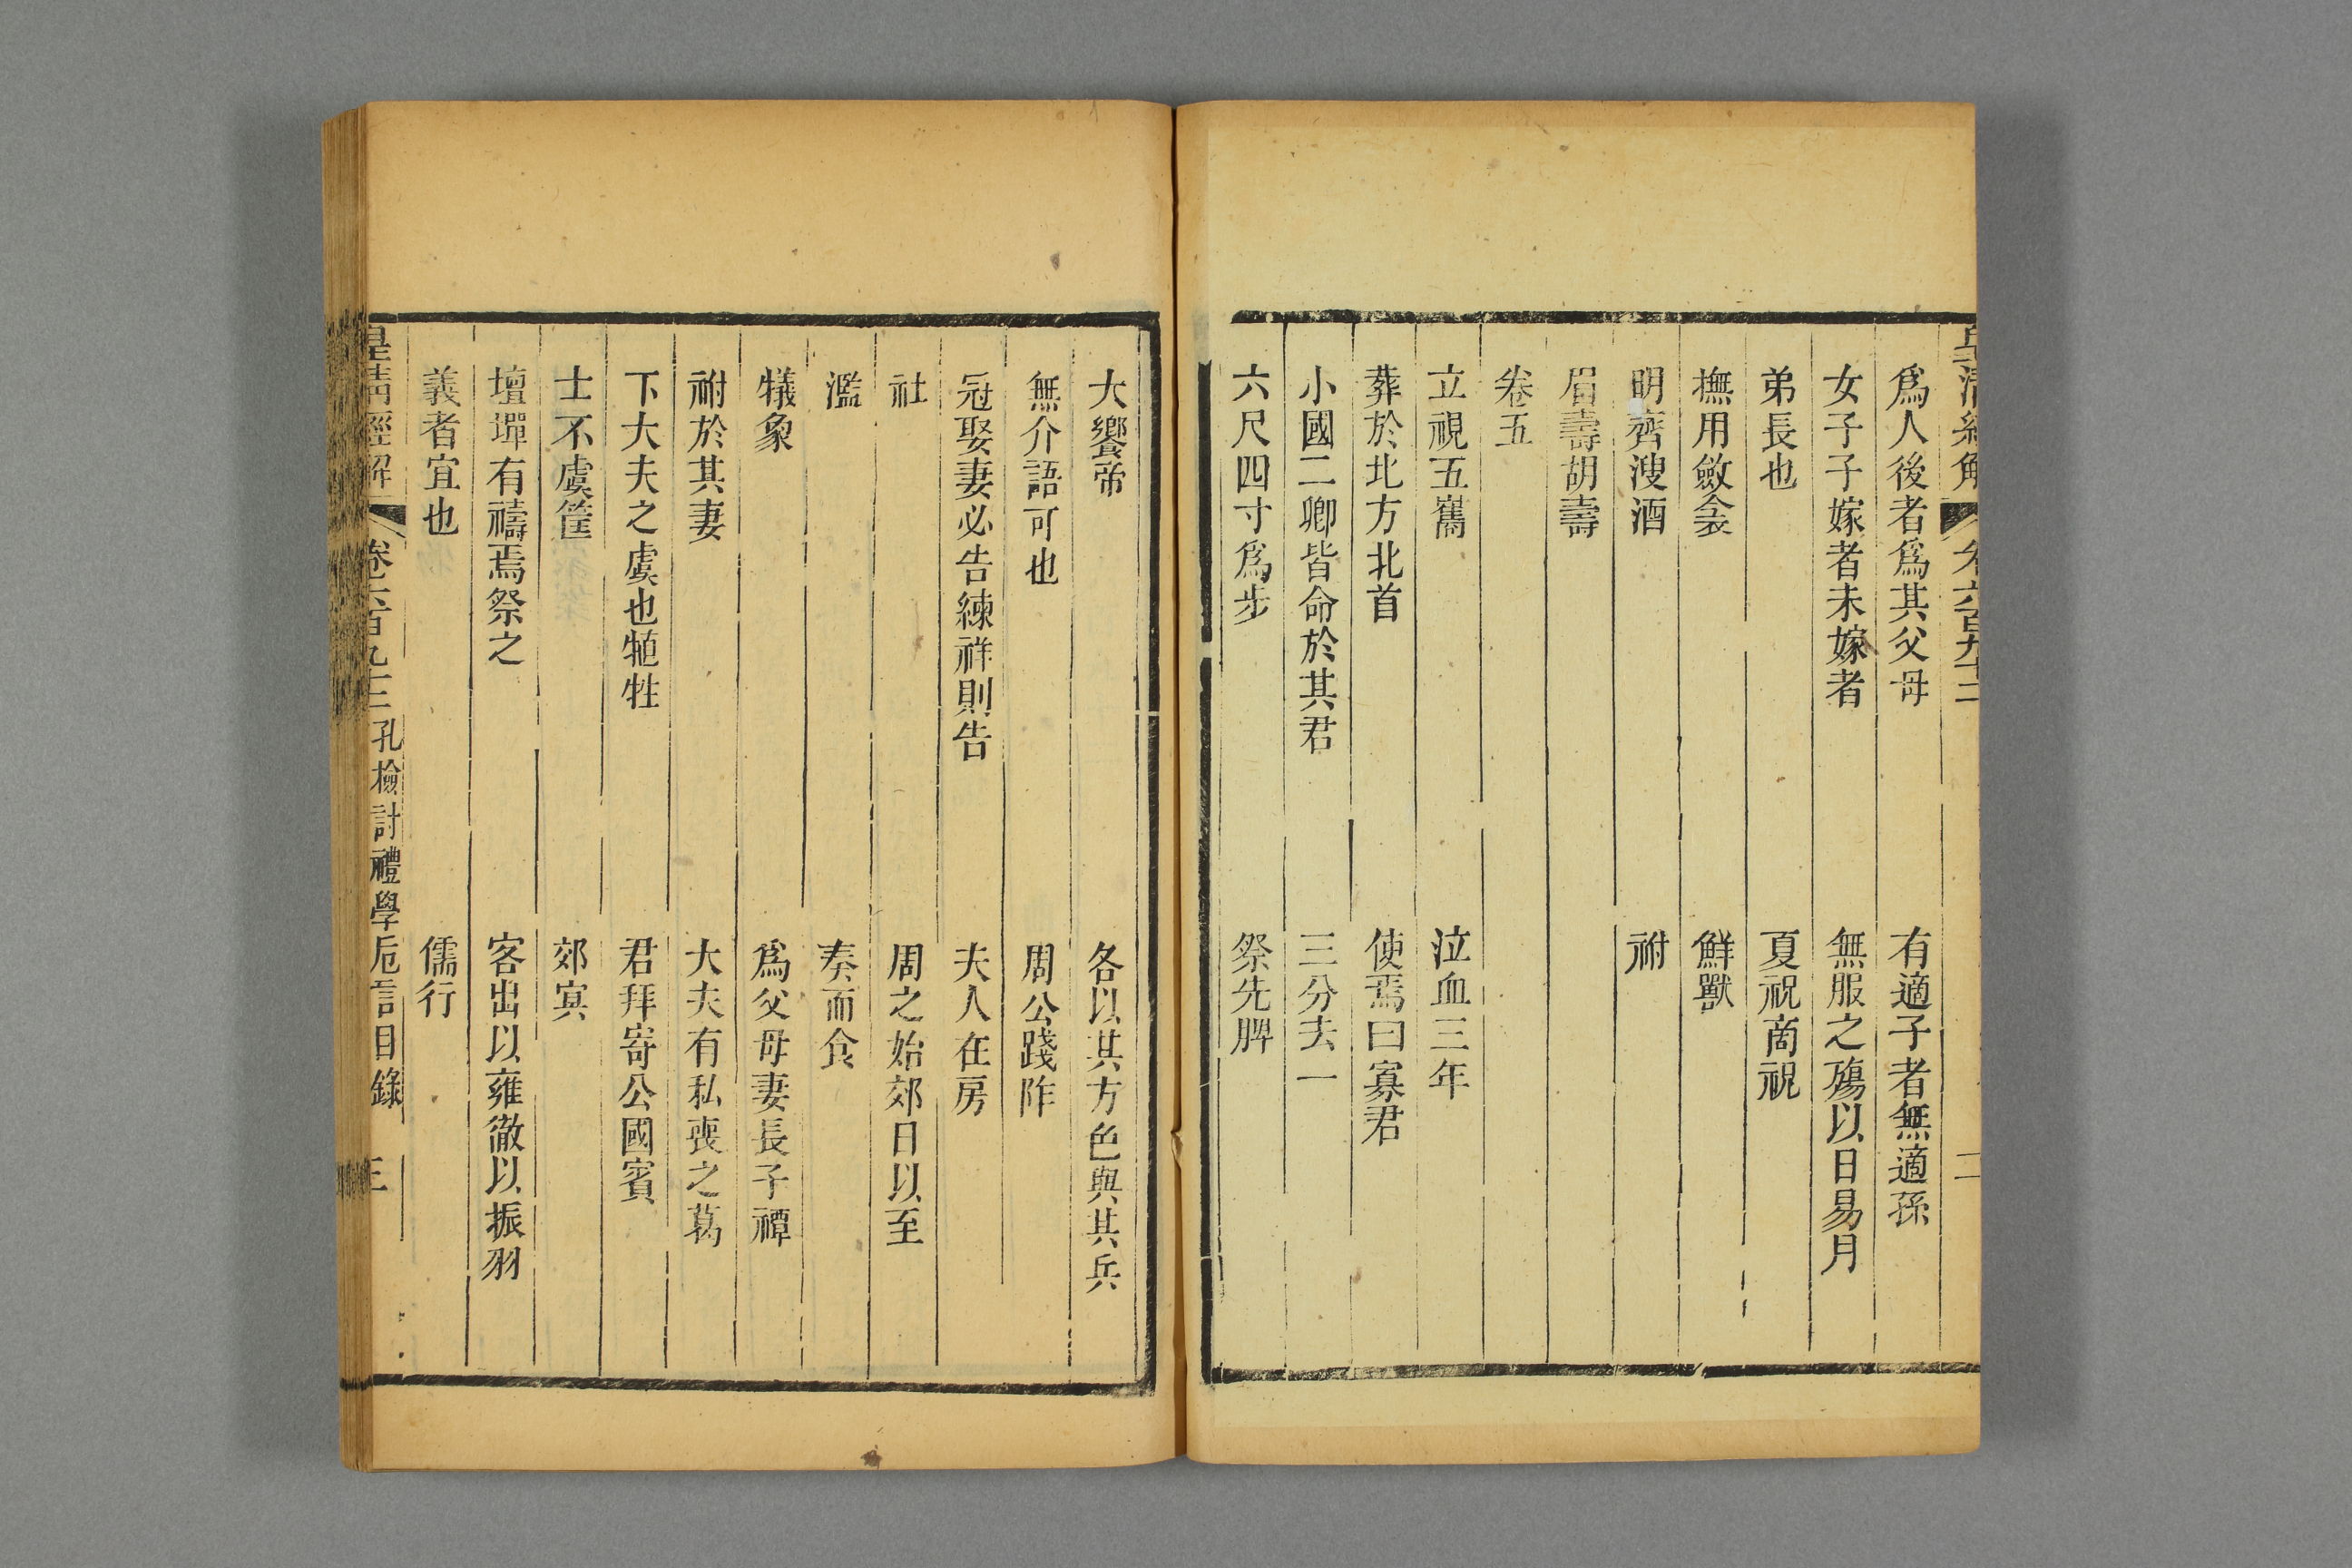 皇清經解 卷六百九十二 二
爲人後者爲其父母 有適子者無適孫
女子子嫁者未嫁者 無服之殤以日易月
弟長也 夏祝商祝
撫用斂衾 鮮獸
明齊溲酒 祔
眉壽胡壽
卷五
立視五巂 泣血三年
葬於北方北首 使焉曰寡君
小國二卿皆命於其君 三分去一
六尺四寸爲步 祭先脾
大饗帝 各以其方色與其兵
無介語可也 周公踐阼
冠娶妻必告練祥則告 夫人在房
社 周之始郊日以至
濫 奏而食
犧象 爲父母妻長子禫
祔於其妻 大夫有私喪之葛
下大夫之虞也犆牲 君拜寄公國賓
士不虞筐 郊宾
壇墠有禱焉祭之 客出以雍徹以振羽
義者宜也 儒行
皇清經解 卷六百九十二 孔檢討禮學卮言目錄 三